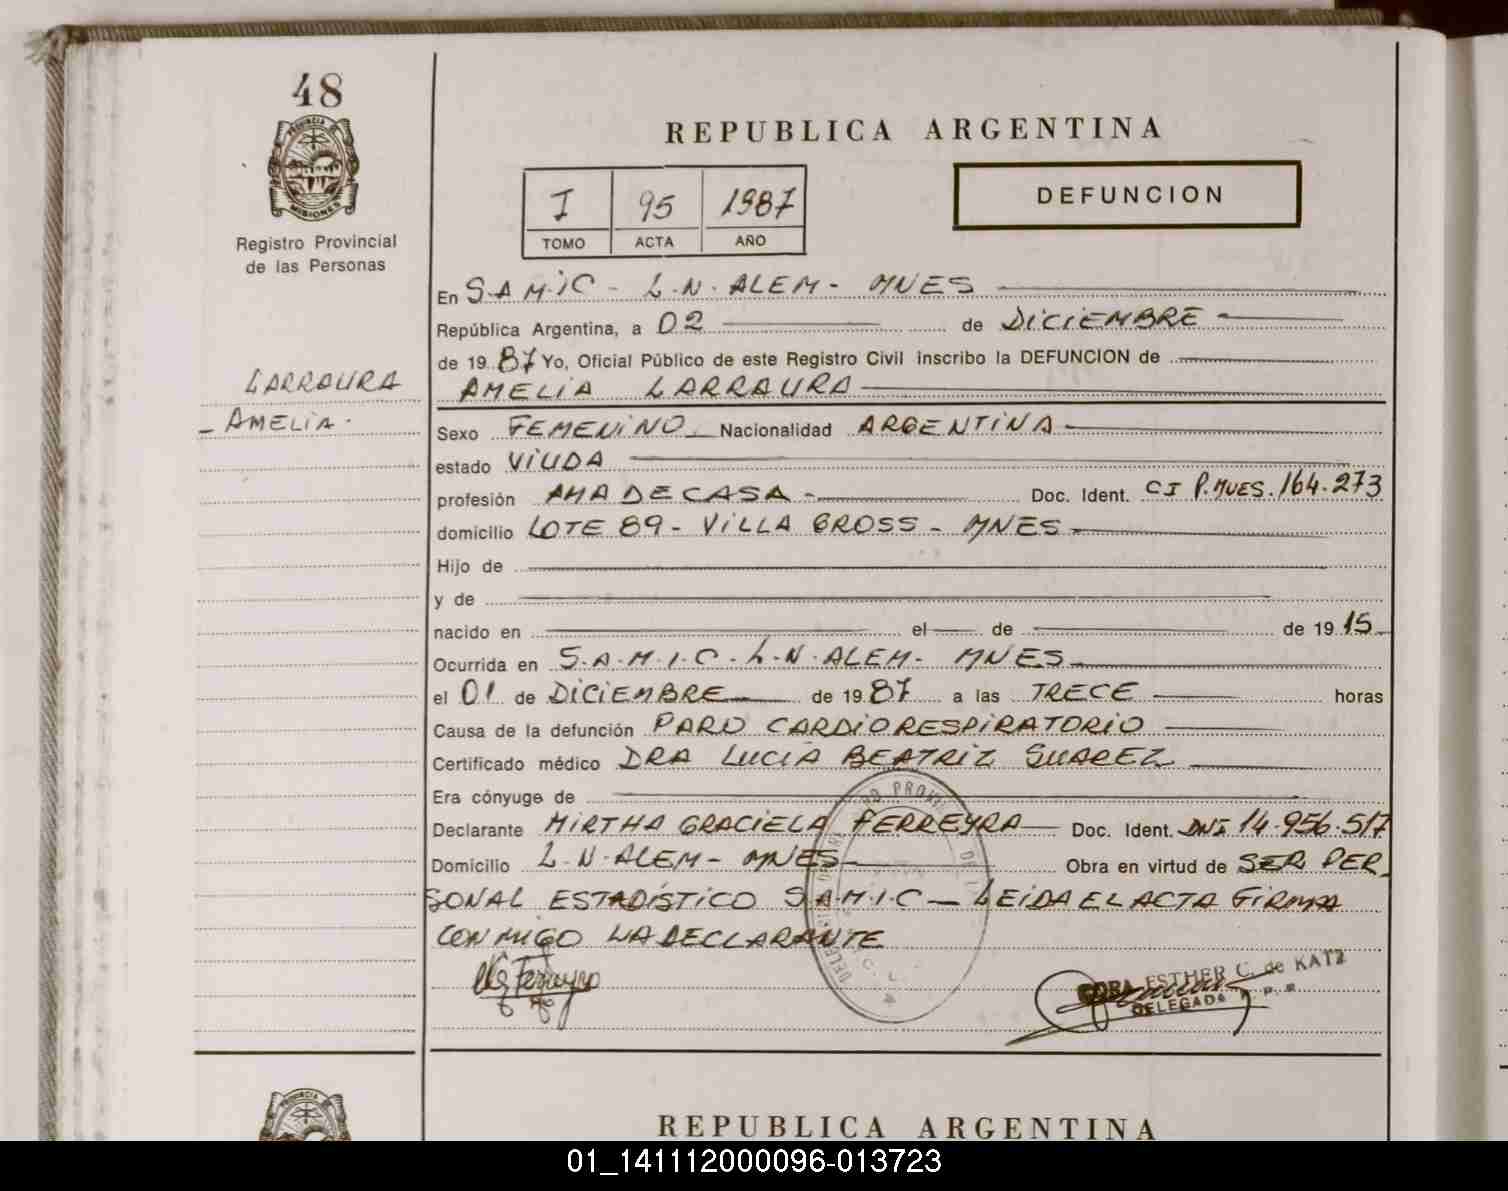 48
PROVINCIA DE
MISIONES
Registro Provincial
de las Personas
REPUBLICA ARGENTINA
I 95 1987
TOMO ACTA AÑO
DEFUNCION
En S.A.M.I.C - L.N. ALEM - MNES
República Argentina, a 02 de DICIEMBRE
de 19 87 Yo, Oficial Público de este Registro Civil inscribo la DEFUNCION de
AMELIA LARRAURA
LARRAURA
- AMELIA -
Sexo FEMENINO Nacionalidad ARGENTINA
estado VIUDA
profesión AMA DE CASA - Doc. Ident. CI P. MNES. 164.273
domicilio LOTE 89 - VILLA GROSS - MNES
Hijo de
y de
nacido en el de de 19 15
Ocurrida en S.A.M.I.C. L.N. ALEM - MNES
el 01 de DICIEMBRE de 19 87 a las TRECE horas
Causa de la defunción PARO CARDIORESPIRATORIO
Certificado médico DRA LUCIA BEATRIZ SUAREZ
Era cónyuge de
Declarante MIRTHA GRACIELA FERREYRA Doc. Ident. DNI 14.956.517
Domicilio L.N. ALEM - MNES Obra en virtud de SER PER
SONAL ESTADÍSTICO S.A.M.I.C - LEIDA EL ACTA FIRMA
CONMIGO LA DECLARANTE
ESTHER C. de KATZ
DELEGADA
REPUBLICA ARGENTINA
01_141112000096-013723